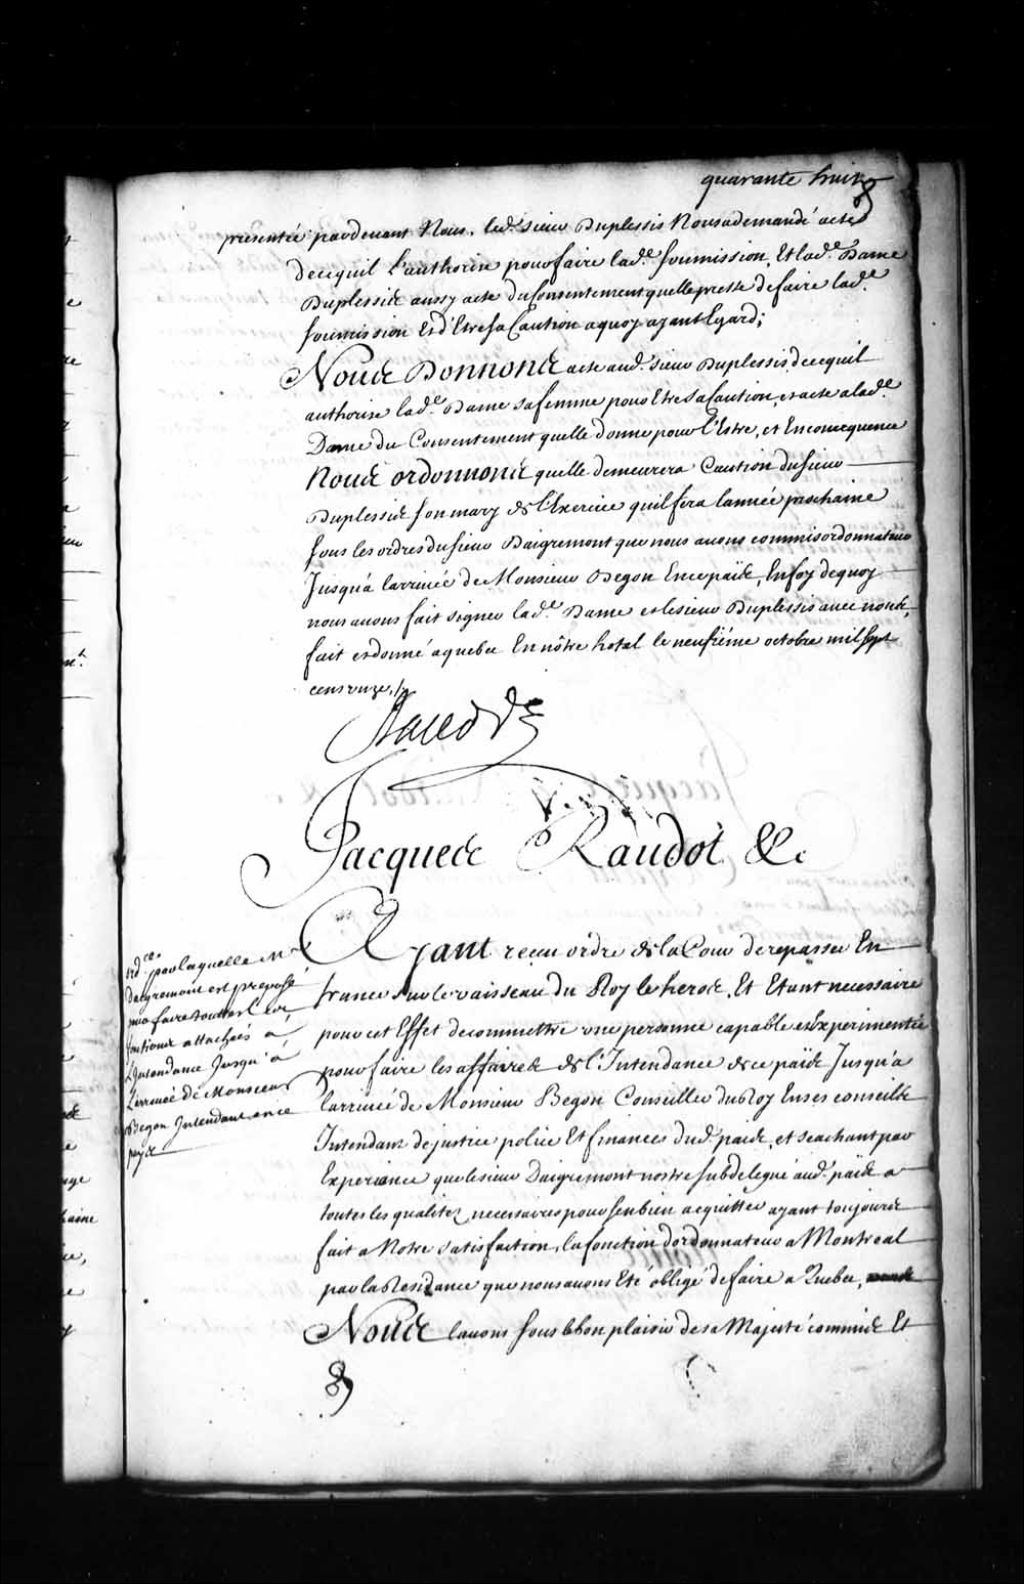 quarante huit
presentée pardevant Nous, led. sieur Duplessis Nous a demandé acte
de ce quil l'authorise pour faire lad.e soumission, Et lad.e Dame
Duplessis aussy acte du Consentement quelle preste de faire lad.e
soumission Et d'Estre sa Caution a quoy ayant Egard;
Nous Donnons acte aud. sieur Duplessis, de ce quil
authorise lad.e Dame sa femme pour Etre sa Caution, et acte a lad.e
Dame du Consentement quelle donne pour l'Estre, et En consequence
Nous ordonnons quelle demeurera Caution du sieur
Duplessis son mary de l'Exercice quil fera lannée prochaine
sous les ordres du sieur Daigremont que nous avons commis ordonnateur
Jusqu'a larrivée de Monsieur Begon En ce païs, En foy de quoy
nous avons fait signer lad.e Dame et le sieur Duplessis avec nous,
fait et donné a quebec En nôtre hotel le neufiéme octobre mil sept
cens onze./.
Raudot
Jacques Raudot &c
Ayant receu ordre de la Cour de repasser En
france sur le vaisseau du Roy le heros, Et Etant necessaire
pour cet Effet de commettre une personne capable et Experimentée
pour faire les affaires de l'Intendance de ce païs Jusqu'a
larrivée de Monsieur Begon Conseiller du Roy En ses conseils
Intendant de justice police Et finances dud. païs, et scachant par
Experiance que le sieur Daigremont nostre subdelegué aud. païs a
toutes les qualitez necessaires pour s'en bien acquitter ayant toujours
fait a Notre satisfaction, la fonction d'ordonnateur a Montreal
par la Residance que nous avons Eté obligé de faire a Quebec,
Nous lavons sous le bon plaisir de sa Majesté commis Et
ord.ce par laquelle Mr
Daigremont est preposé
pour faire toutes les
fontions attachées à
L'Intendance Jusqu'à
l'arrivée de Monsieur
Begon Intendant en ce
pays